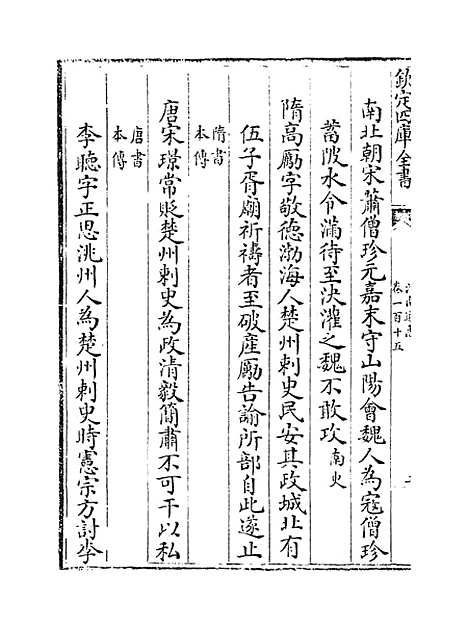 欽定四庫全書
卷一百十五
南北朝宋蕭僧珍元嘉末守山陽會魏人為寇僧珍
蓄陂水令滿待至決灌之魏不敢攻南史
隋高勵字敬德渤海人楚州刺史民安其政城北有
伍子胥廟祈禱者至破產勵告諭所部自此遂止
隋書
本傳
唐宋璟常貶楚州刺史為政清毅簡肅不可干以私
唐書
本傳
李聽字正思洮州人為楚州刺史時憲宗方討李